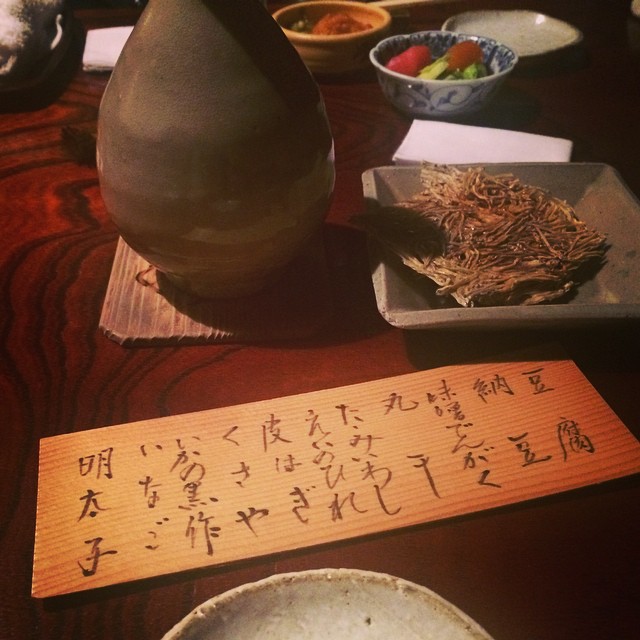 豆腐
納豆
味噌でんがく
丸干し
たたみいわし
えいのひれ
皮はぎ
くさや
いかの黒作
いなご
明太子